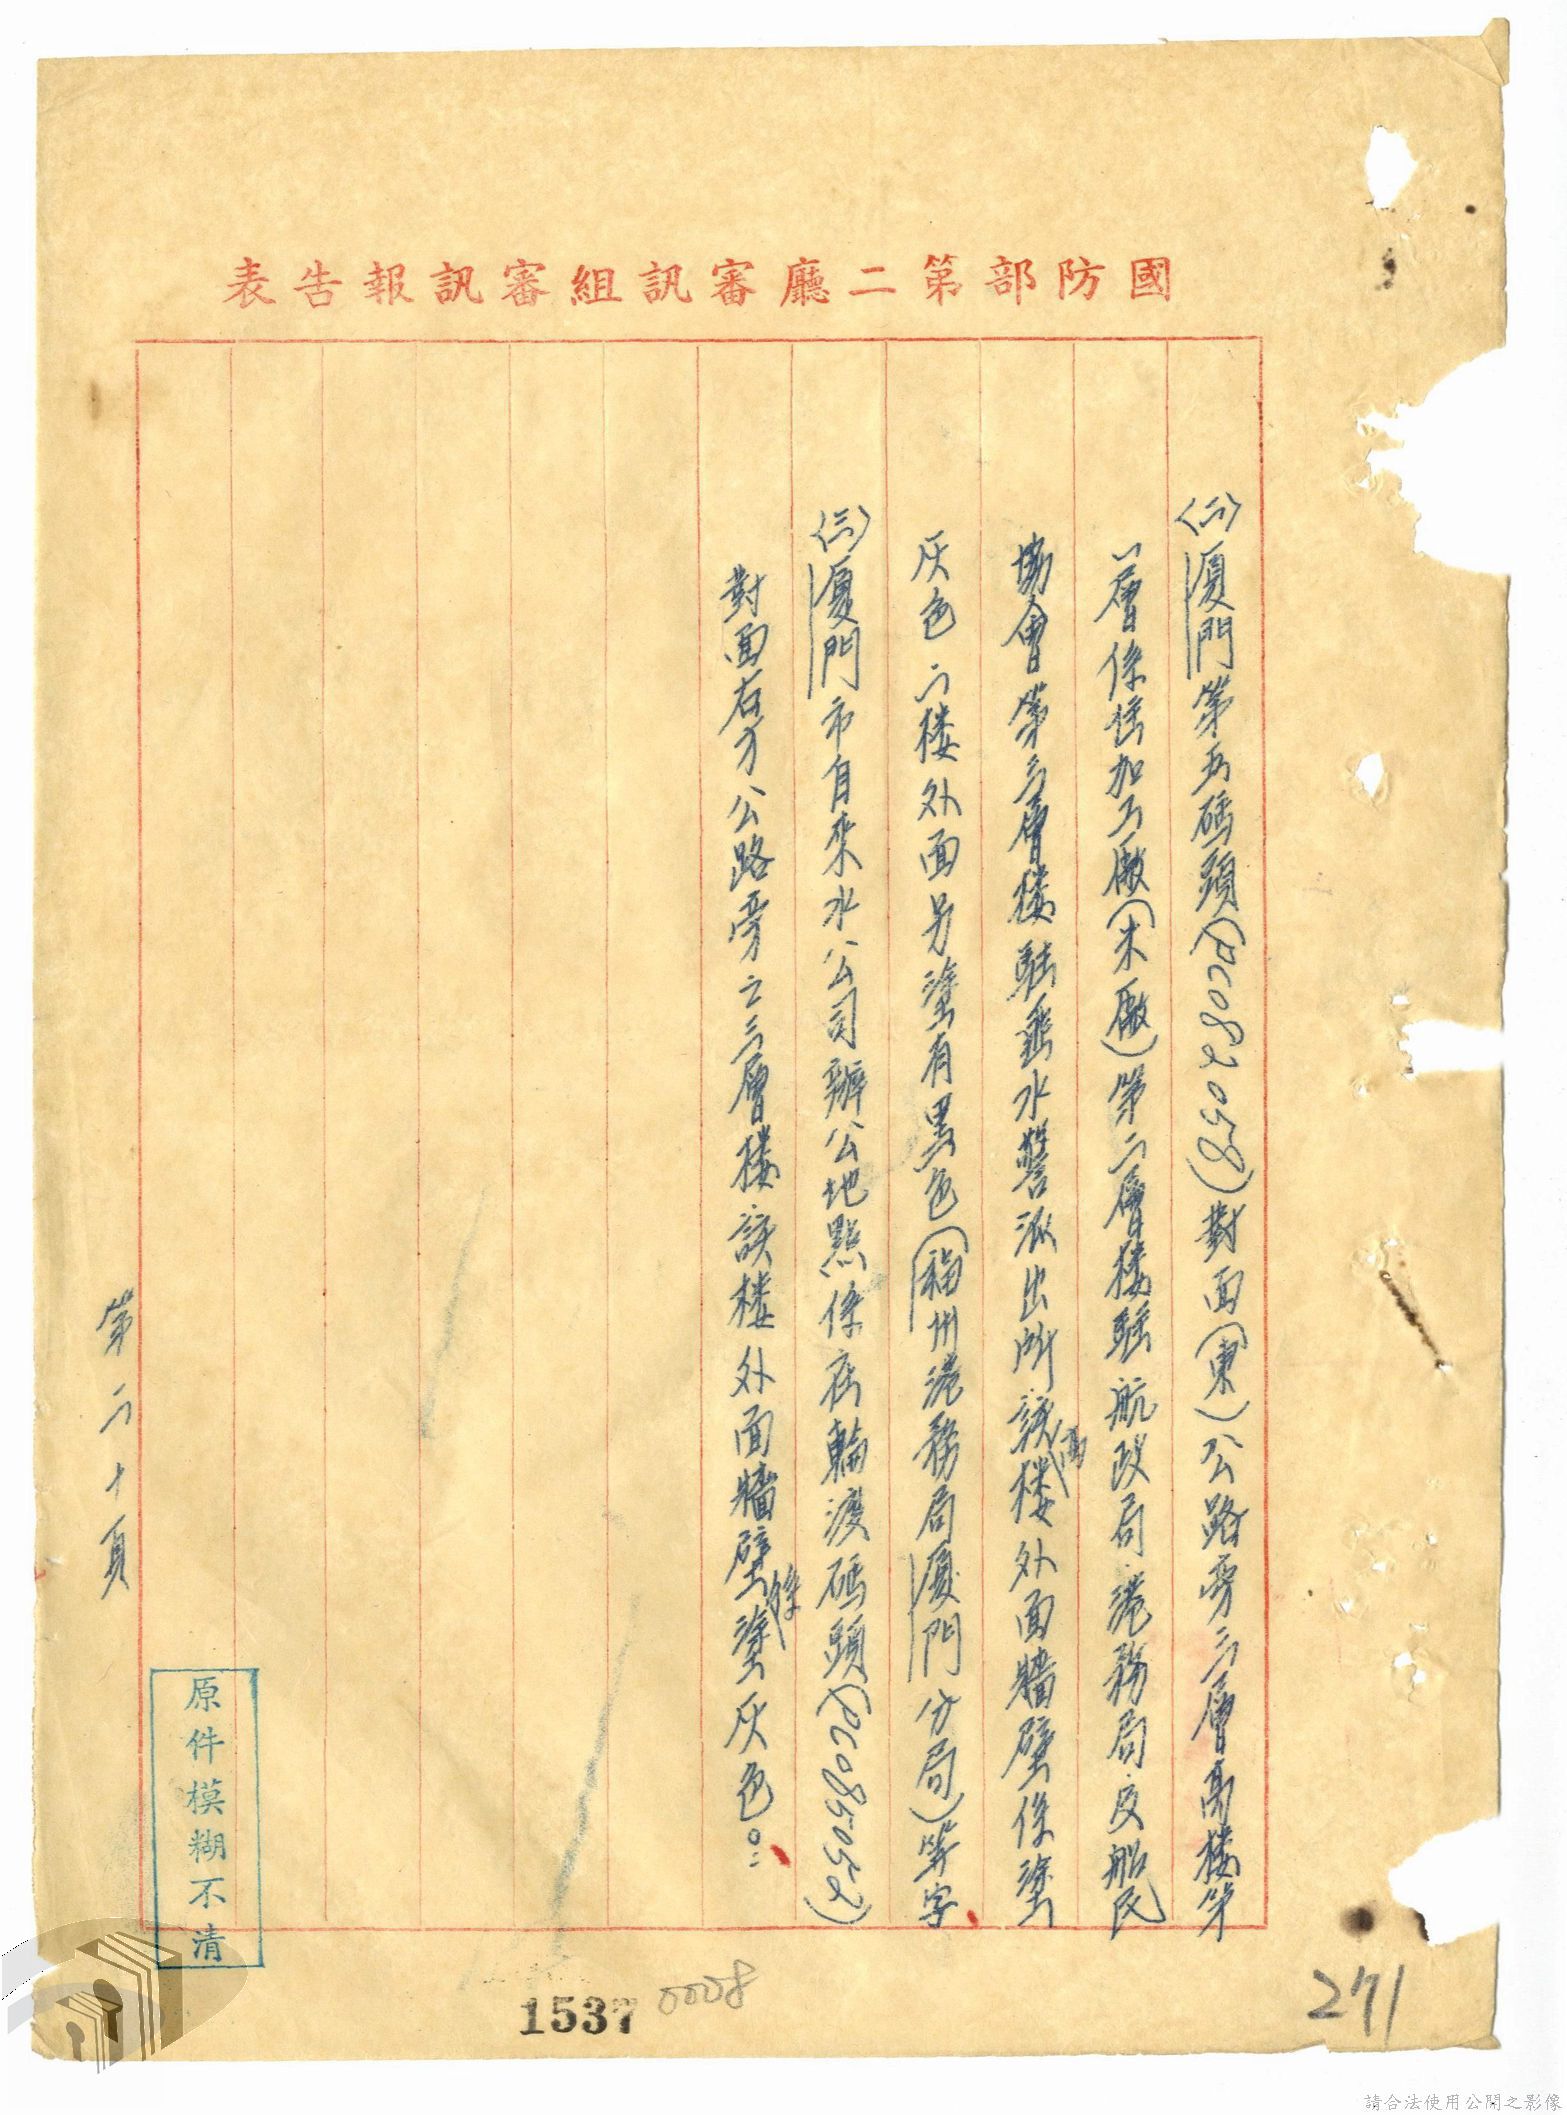 國防部第二廳審訊組審訊報告表
〈二〉廈門第五碼頭(RC082058)對面(東)公路旁三層高楼第
一層係 加工廠(木廠)第二層楼駐航政局.港務局.及船民
協會第三層楼駐 水警派出所.該楼外面牆壁係塗
高
灰色二楼外面另塗有黑色(福州港務局廈門分局)等字
〈三〉廈門市自來水公司辦公地點係在輪渡碼頭(RC085052)
對面右方公路旁之三層楼.該楼外面牆壁塗灰色。
係
第二十頁
原件模糊不清
1537
0008
271
請合法使用公開之影像